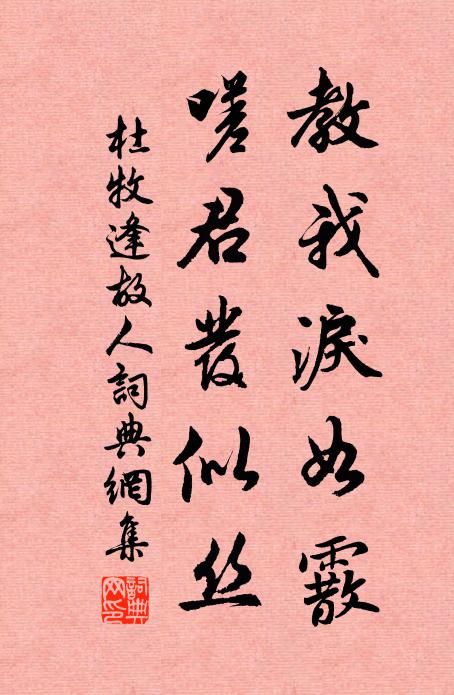 教我淚如霰
嗟君發似丝
杜牧逢故人詞典網集
詞典網印